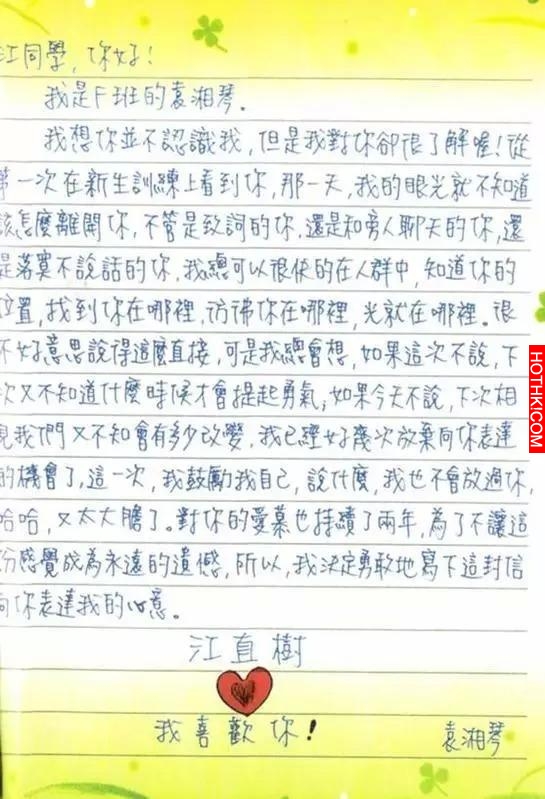 江同學,你好!
我是F班的袁湘琴。
我想你並不認識我,但是我對你卻很了解喔!從
第一次在新生訓練上看到你,那一天,我的眼光就不知道
該怎麼離開你,不管是致詞的你,還是和旁人聊天的你,還
是落寞不說話的你,我總可以很快的在人群中,知道你的
位置,找到你在哪裡,彷彿你在哪裡,光就在哪裡。很
不好意思說得這麼直接,可是我總會想,如果這次不說,下
次又不知道什麼時候才會提起勇氣;如果今天不說,下次相
見我們又不知會有多少改變,我已經好幾次放棄向你表達
的機會了,這一次,我鼓勵我自己,說什麼,我也不會放過你,
哈哈,又太大膽了。對你的愛慕也持續了兩年,為了不讓這
份感覺成為永遠的遺憾,所以,我決定勇敢地寫下這封信
向你表達我的心意。
江直樹
我喜歡你!
袁湘琴
HOTHK1COM